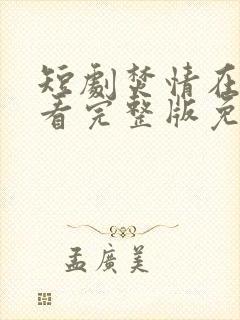 短劇焚情在
看完整版免
孟廣美